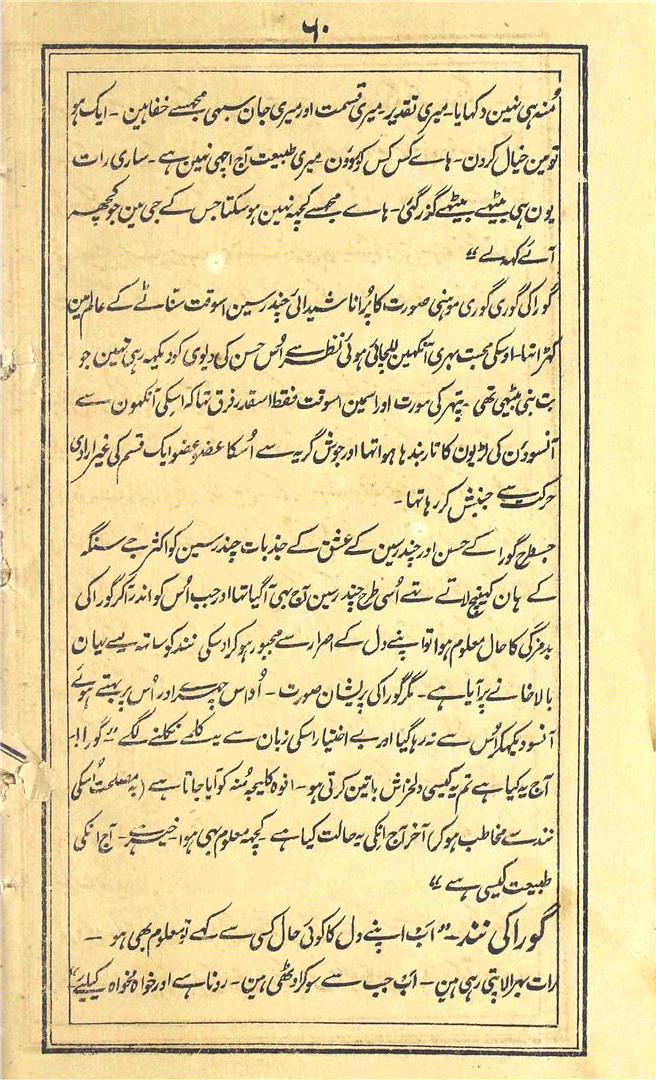 ۶۰
مُنہ ہی نہین دکہایا۔ میری تقدیر۔ میری قسمت اور میری جان سبہی مجہسے خفا ہین ۔ ایک ہو
تو مین خیال کرون۔ ہاے کس کس کو روؤن میری طبیعت آج اچہی نہین ہے ۔ ساری رات
یون ہی بیٹہے بیٹہے گذر گئی۔ ہاے مجہسے کچہہ نہین ہو سکتا جس کے جی مین جو کچہہ
آئے کہہ لے “
گورا کی گوری گوری موہنی صورت کا پُرانا شیدائی چندر سین اسوقت سناٹے کے عالم مین
کہڑا تہا۔ اوسکی محبت بہری آنکہین للچائی ہوئی نظر سے اُس حسن کی دیوی کو دیکہہ رہی تہین جو
بت بنی بیٹہی تہی ۔ پتہر کی مورت اور اسمین اسوقت فقط اسقدر فرق تہا کہ اسکی آنکہون سے
آنسوؤن کی لڑیون کا تار بندہا ہوا تہا اور جوش گریہ سے اُسکا عضو عضو ایک قسم کی غیر ارادی
حرکت سے جنبش کر رہا تہا ۔
جسطرح گورا کے حسن اور چندر سین کے عشق کے جذبات چندر سین کو اکثر جے سنگہ
کے ہان کہینچ لاتے تہے اُسی طرح چندر سین آج بہی آ گیا تہا اور جب اُس کو اندر آکر گورا کی
بدمزگی کا حال معلوم ہوا تو اپنے دل کے اصرار سے مجبور ہو کر اوسکی نند کو ساتہہ لیے یہان
بالاخانے پر آیا ہے ۔ مگر گورا کی پریشان صورت ۔ اُداس چہرے اور اُس پر بہتے ہوئے
آنسو دیکہکر اُس سے نہ رہا گیا اور بے اختیار اسکی زبان سے یہ کلمے نکلنے لگے ”گورا !۔
آج یہ کیا ہے تم یہ کیسی دلخراش باتین کرتی ہو ۔ افوہ کلیجہ مُنہ کو آیا جاتا ہے (بہ مصلحت اُسکی
نند سے مخاطب ہو کر) آخر آج انکی یہ حالت کیا ہے ۔ کچہہ معلوم بہی ہوا ۔ خیر ہے ۔ آج انکی
طبیعت کیسی ہے “
گورا کی نند ۔ ”اب اپنے دل کا کوئی حال کسی سے کہے تو معلوم بھی ہو ۔
رات بہر الاپتی رہی ہین ۔ اب جب سے سو کر اوٹھی ہین ۔ رونا ہے اور خواہ نخواہ کیلئے“